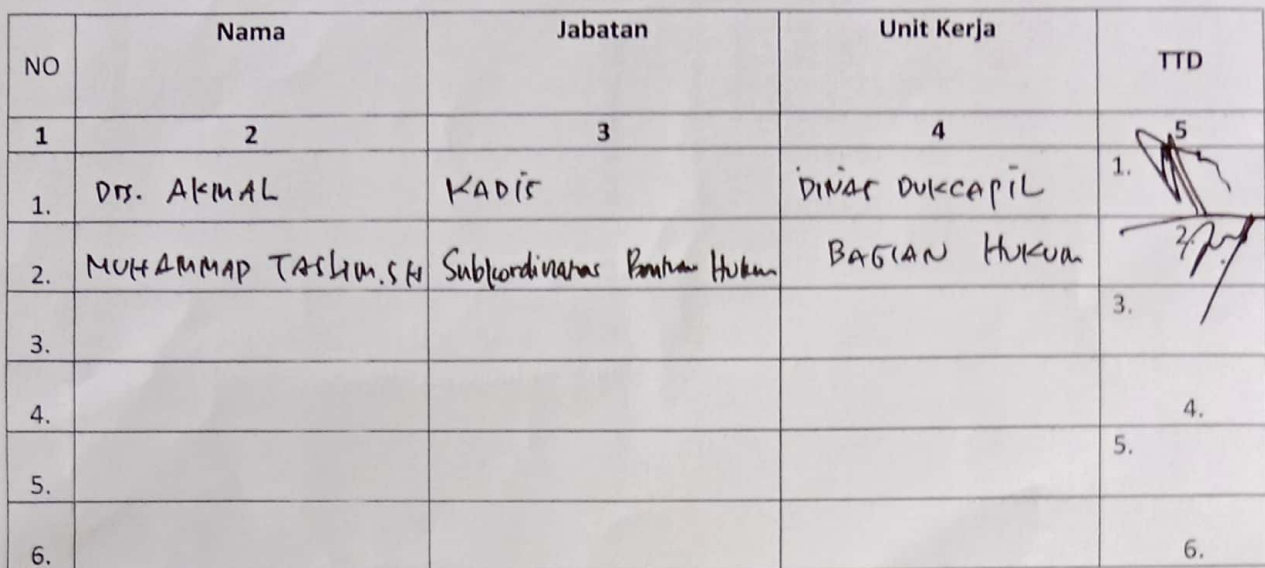 NO Nama Jabatan Unit Kerja TTD
1 2 3 4 5
1. Drs. AKMAL KADIS DINAS DUKCAPIL 1.
2. MUHAMMAD TASLIM.SH Subkordinator Bantuan Hukum BAGIAN HUKUM 2.
3. 3.
4. 4.
5. 5.
6. 6.